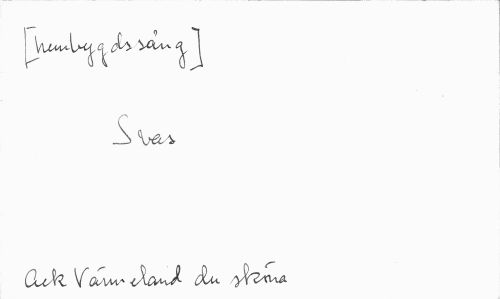 [hembygdssång]
Svas
Ack Värmeland du sköna